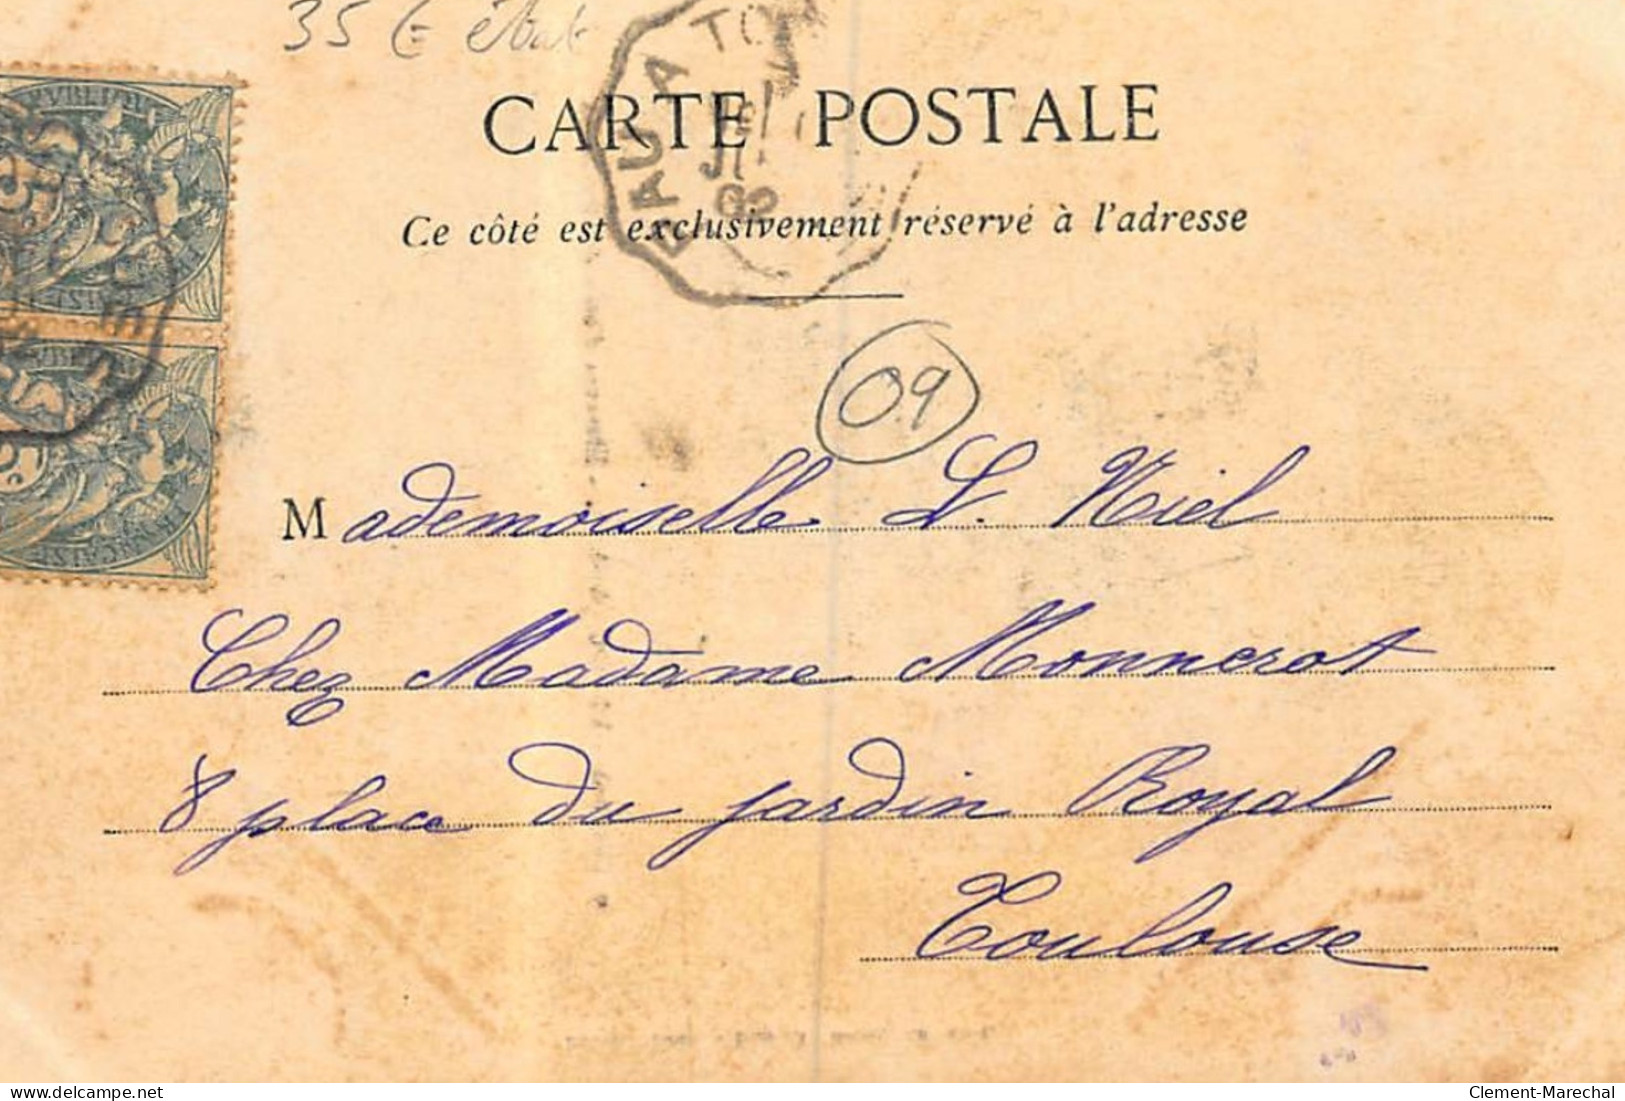 35 € état
BAU A TO
03
CARTE POSTALE
Ce côté est exclusivement réservé à l'adresse
09
Mademoiselle L. Niel
Chez Madame Monnerot
8 place du jardin Royal
Toulouse
delcampe.net
Clement-Marechal